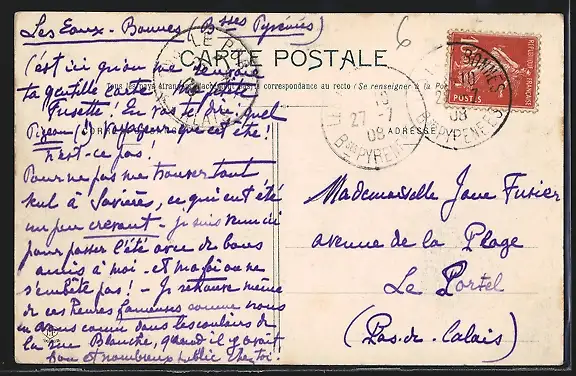 Les Eaux-Bonnes (Bsses Pyrénées)
CARTE POSTALE
Tous les pays étrangers n'acceptent pas la correspondance au recto (Se renseigner à la Poste)
C'est ici qu'on me renvoie
ta gentille carte
Fusette! En vas tu dire quel
Pigeon (!) voyageur que cet été!
n'est-ce pas!
Pour ne pas me trouver tout
seul à Savières, ce qui eut été
un peu crevant - je suis venu ici
pour passer l'été avec de bons
amis à moi - et ma foi on ne
s'embête pas! - Je retrouve même
de ces Revues fameuses comme nous
en avons connu dans les couloirs de
la rue Blanche, quand il y avait
bon et nombreux public chez toi!
ADRESSE
Mademoiselle Jane Fusier
avenue de la Plage
Le Portel
(Pas-de-Calais)
27 -7
08
Bses PYRENEES
BONNES
08
Bses PYRENEES
LE PORTEL
REPUBLIQUE FRANÇAISE
POSTES
6